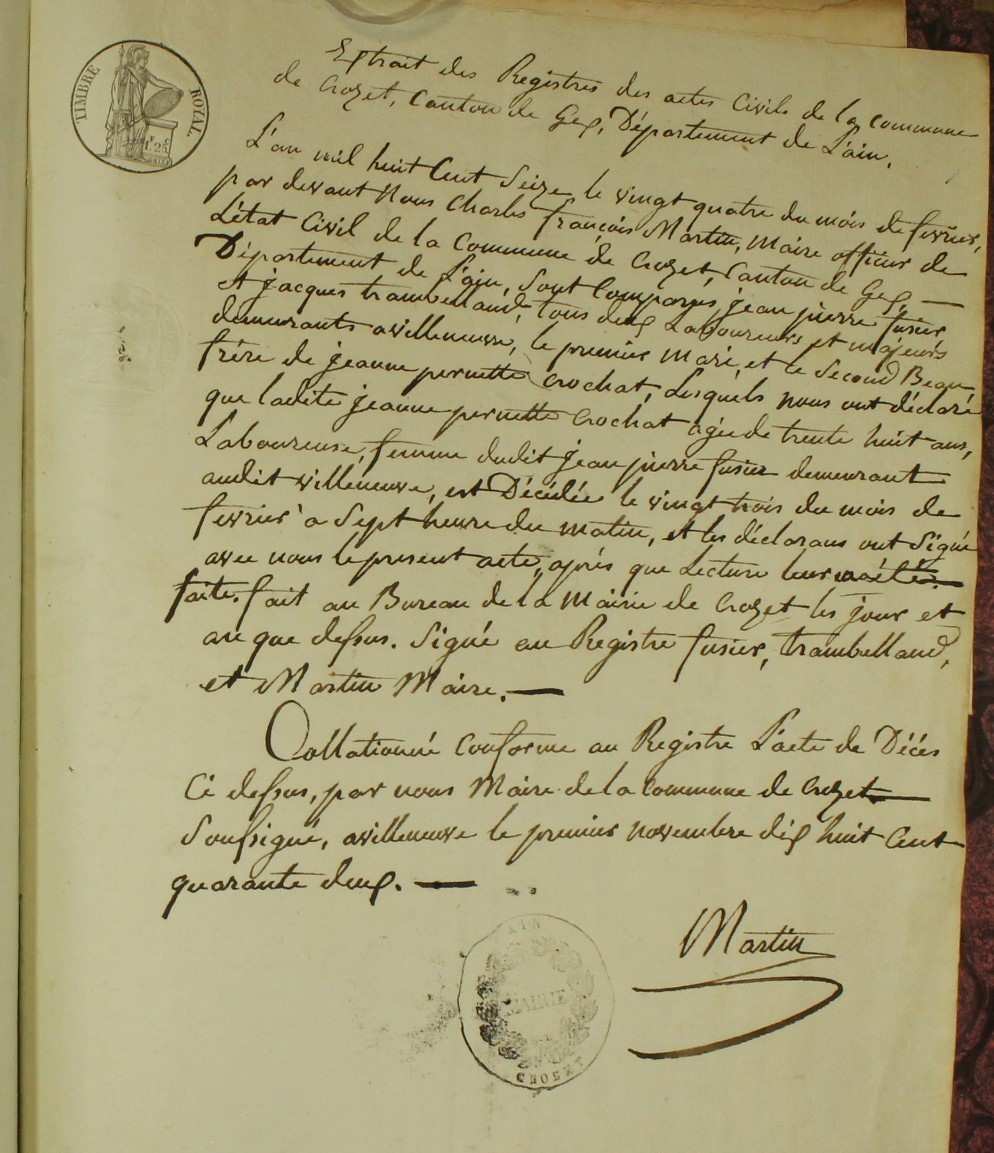 TIMBRE ROYAL
Extrait des Registres des actes Civils de la commune
de Crozet, Canton de Gex, Département de L'ain.
L'an mil huit Cent Seize le vingt quatre du mois de fevrier,
par devant Nous Charles françois Martin, Maire officier de
L'état Civil de la Commune de Crozet, Canton de Gex —
Département de L'ain, Sont Comparus jean pierre fusier
et jacques trambelland, tous deux Laboureurs et majeurs
demeurants avilleneuve, le premier Mari, et le Second Beau
frére de jeanne pernette Crochat, Lesquels nous ont déclaré
que ladite jeanne pernette Crochat agée de trente huit ans,
Laboureuse, femme dudit jean pierre fusier demeurant
audit villeneuve, est Décédée le vingt trois du mois de
fevrier a Sept heure du matin, et les déclarans ont Signé
avec nous le present acte, aprés que Lecture leur a été
faite. fait au Bureau de la Mairie de Crozet les jour et
an que dessus. Signé au Registre fusier, trambelland,
et Martin Maire. —
Collationné Conforme au Registre L'acte de Décés
Ci dessus, par nous Maire de la Commune de Crozet —
Soussigné, avilleneuve le premier novembre dix huit Cent
quarante deux. —
Martin
AIN
MAIRIE
CROZET